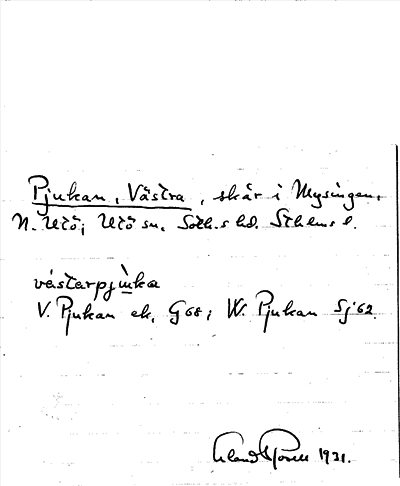 Pjukan, Västra, skär i Mysingen,
N. Utö; Utö sn. Soth.s hd. Sthlms l.
västarpju̱ka
V. Pjukan ek. G68; W. Pjukan Sj62.
1931.